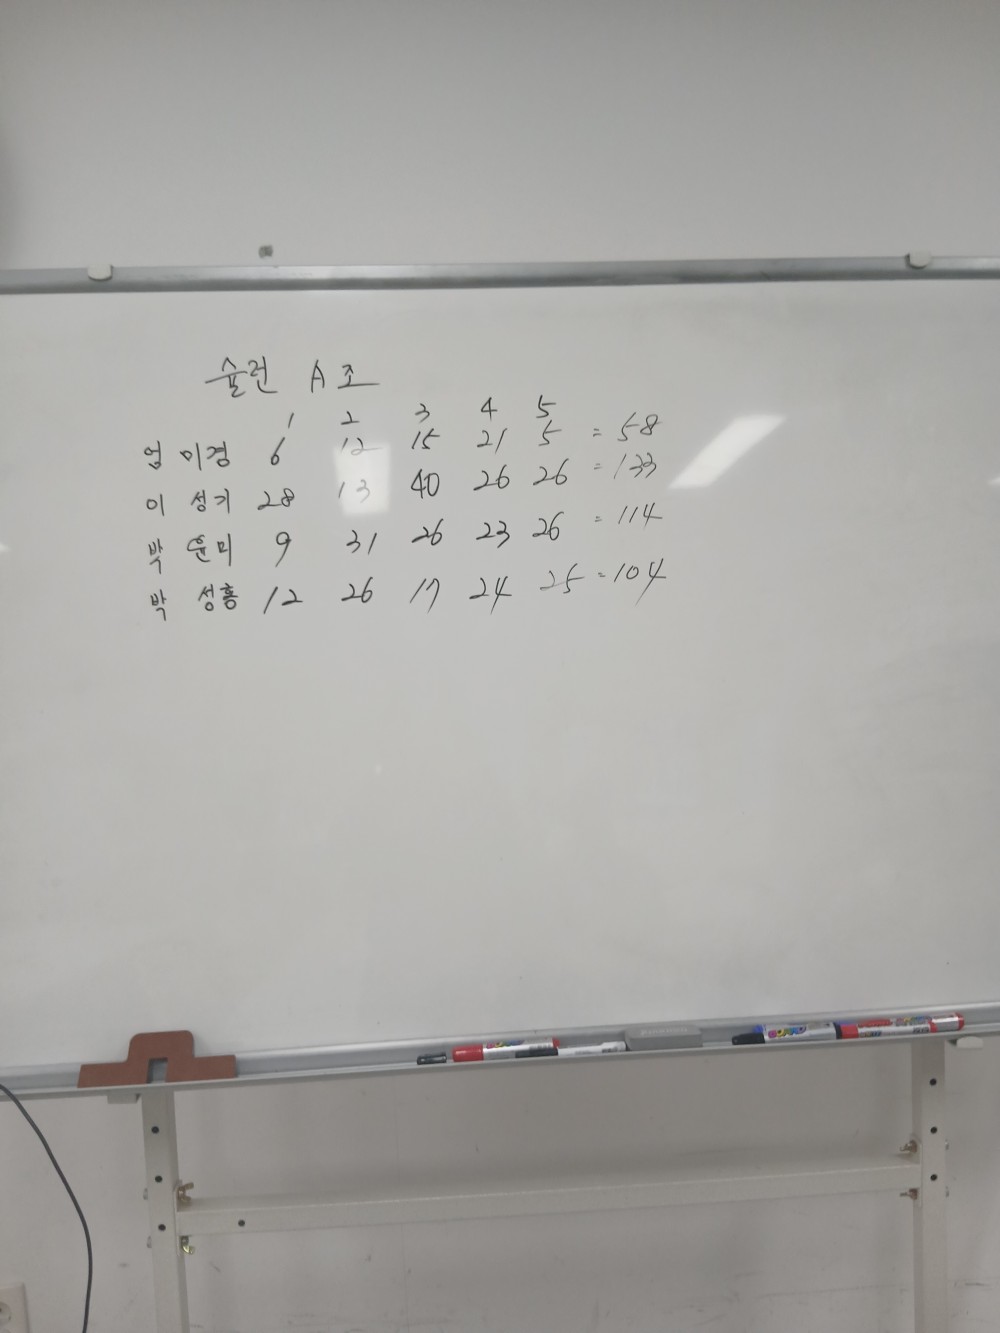 슐런 A조
1 2 3 4 5
엄 미경 6 12 15 21 5 = 58
이 성기 28 13 40 26 26 = 133
박 윤미 9 31 26 23 26 = 114
박 성흥 12 26 17 24 25 = 104